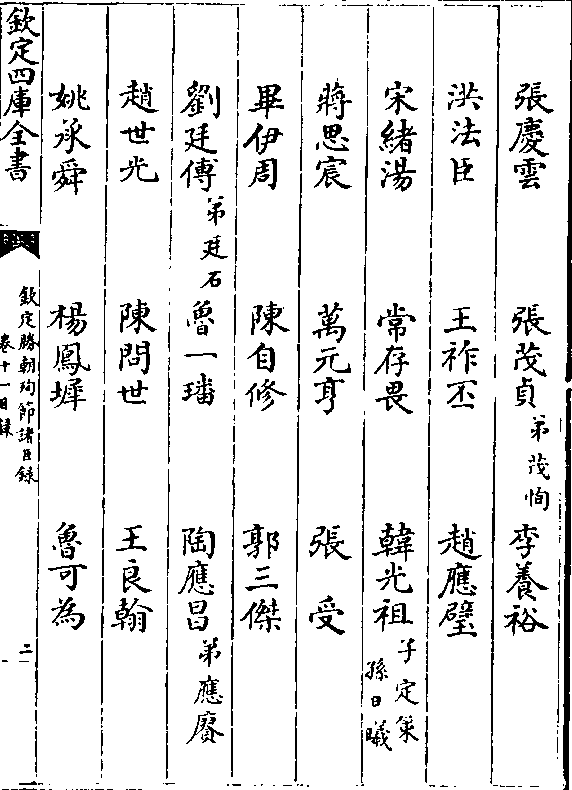 張慶雲　張茂貞弟茂恂　李養裕
洪法臣　王祚丕　趙應璧
宋緒湯　常存畏　韓光祖子定策孫日曦
蔣思宸　萬元亨　張　受
畢伊周　陳自修　郭三傑
劉廷傅弟廷石　魯一璠　陶應昌弟應賡
趙世光　陳問世　王良翰
姚承舜　楊鳳墀　魯可為
欽定四庫全書
欽定勝朝殉節諸臣錄
卷十一目錄
二